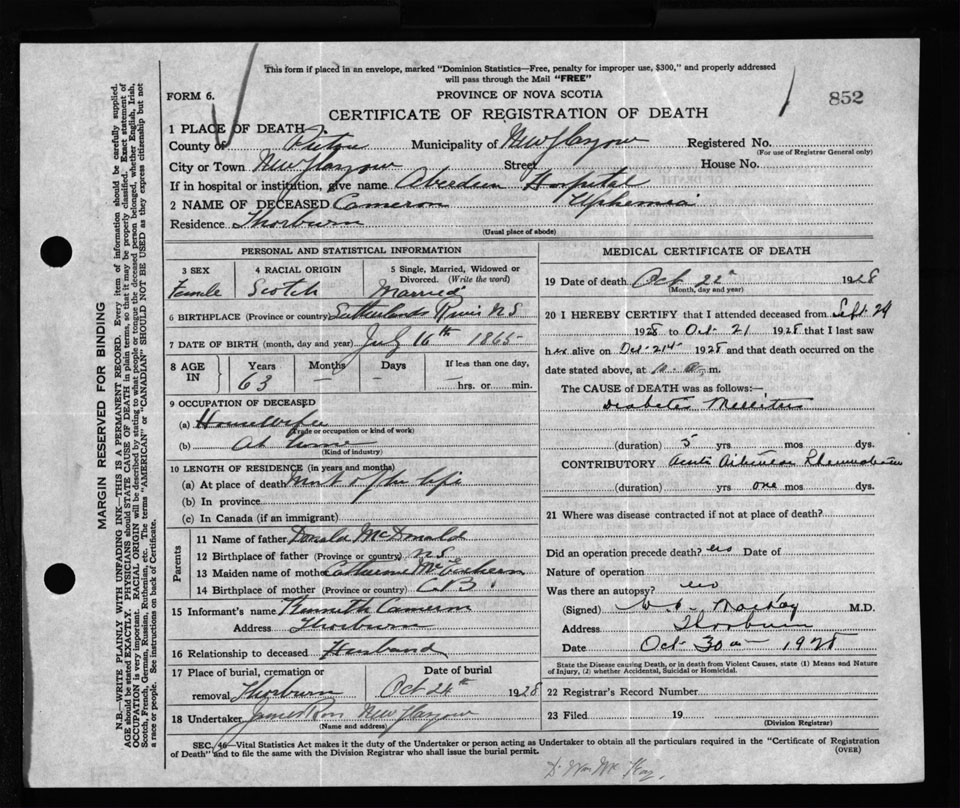 This form if placed in an envelope, marked "Dominion Statistics—Free, penalty for improper use, $300," and properly addressed
will pass through the Mail "FREE"
FORM 6.
PROVINCE OF NOVA SCOTIA
852
CERTIFICATE OF REGISTRATION OF DEATH
1 PLACE OF DEATH
County of Pictou Municipality of New Glasgow Registered No.
(For use of Registrar General only)
City or Town New Glasgow Street House No.
If in hospital or institution, give name Aberdeen Hospital
2 NAME OF DECEASED Cameron Uphemia
Residence Thorburn
(Usual place of abode)
PERSONAL AND STATISTICAL INFORMATION
3 SEX 4 RACIAL ORIGIN 5 Single, Married, Widowed or
Divorced. (Write the word)
Female Scotch Married
6 BIRTHPLACE (Province or country) Sutherlands River N S
7 DATE OF BIRTH (month, day and year) July 16th 1865
8 AGE IN Years Months Days If less than one day,
63 — — hrs. or min.
9 OCCUPATION OF DECEASED
(a) Housewife
(Trade or occupation or kind of work)
(b) At home
(Kind of industry)
10 LENGTH OF RESIDENCE (in years and months)
(a) At place of death most of her life
(b) In province
(c) In Canada (if an immigrant)
Parents
11 Name of father Donald McDonald
12 Birthplace of father (Province or country) NS
13 Maiden name of mother Catherine McEachern
14 Birthplace of mother (Province or country) C B.
15 Informant's name Kenneth Cameron
Address Thorburn
16 Relationship to deceased Husband
17 Place of burial, cremation or Date of burial
removal Thorburn Oct 24th 1928
18 Undertaker James Ross New Glasgow
(Name and address)
MEDICAL CERTIFICATE OF DEATH
19 Date of death Oct 22nd 1928
(Month, day and year)
20 I HEREBY CERTIFY that I attended deceased from Sept 24
1928 to Oct. 21 1928 that I last saw
her alive on Oct. 21st 1928 and that death occurred on
date stated above, at m.
The CAUSE of DEATH was as follows:—
Diabetes Mellitus
(duration) 5 yrs mos dys.
CONTRIBUTORY Acute Articular Rheumatism
(duration) yrs one mos dys.
21 Where was disease contracted if not at place of death?
Did an operation precede death? no Date of
Nature of operation
Was there an autopsy? no
(Signed) MacKay M.D.
Address Thorburn
Date Oct 30th 1928
State the Disease causing Death, or in death from Violent Causes, state (1) Means and Nature
of Injury, (2) whether Accidental, Suicidal or Homicidal.
22 Registrar's Record Number
23 Filed 19
(Division Registrar)
SEC. 46—Vital Statistics Act makes it the duty of the Undertaker or person acting as Undertaker to obtain all the particulars required in the "Certificate of Registration
of Death" and to file the same with the Division Registrar who shall issue the burial permit.
(OVER)
MARGIN RESERVED FOR BINDING
N.B.—WRITE PLAINLY WITH UNFADING INK—THIS IS A PERMANENT RECORD. Every item of information should be carefully supplied.
AGE should be stated EXACTLY. PHYSICIANS should STATE CAUSE OF DEATH in plain terms, so that it may be properly classified. Exact statement of
OCCUPATION is very important. RACIAL ORIGIN will be described by stating to what people or tongue the deceased person belonged, whether English, Irish,
Scotch, French, German, Russian, Ruthenian, etc. The terms "AMERICAN" or "CANADIAN" SHOULD NOT BE USED as they express citizenship but not
a race or people. See instructions on back of Certificate.